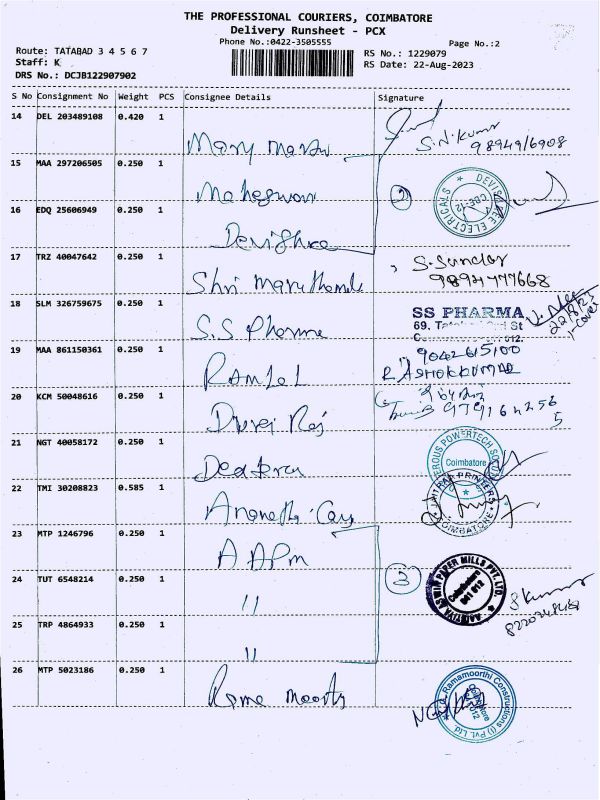 THE PROFESSIONAL COURIERS, COIMBATORE
Delivery Runsheet - PCX
Phone No.:0422-3505555
Page No.:2
Route: TATABAD 3 4 5 6 7
RS No.: 1229079
Staff: K
RS Date: 22-Aug-2023
DRS No.: DCJB122907902
S No Consignment No Weight PCS Consignee Details Signature
14 DEL 203489108 0.420 1
S.N.Kumar
15 MAA 297206505 0.250 1
Maheswari
2
DEVI ELECTRICALS
CBE-12
16 EDQ 25606949 0.250 1
17 TRZ 40047642 0.250 1
Shri
S. Sundar
9894777668
18 SLM 326759675 0.250 1
S.S Pharma
SS PHARMA
69,
22/8/23
19 MAA 861150361 0.250 1
9042615100
R ASHOKKUMAR
20 KCM 50048616 0.250 1
Durai Raj
21 NGT 40058172 0.250 1
POWERTECH
Coimbatore
22 TMI 30208823 0.585 1
MITRA PRINTERS
COIMBATORE
23 MTP 1246796 0.250 1
24 TUT 6548214 0.250 1
"
3
PAPER MILLS PVT. LTD.
Coimbatore
641 012
S Kumar
25 TRP 4864933 0.250 1
"
26 MTP 5023186 0.250 1
Rama Moorthy
Ramamoorthi Constructions (I) Pvt. Ltd.
Coimbatore